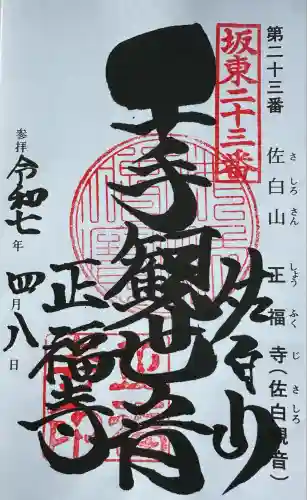 第二十三番 佐白山 正福寺(佐白観音)
さしろさん しょうふくじ さしろ
坂東二十三番
佐白山
千手観世音
正福寺
参拝 令和七年 四月八日